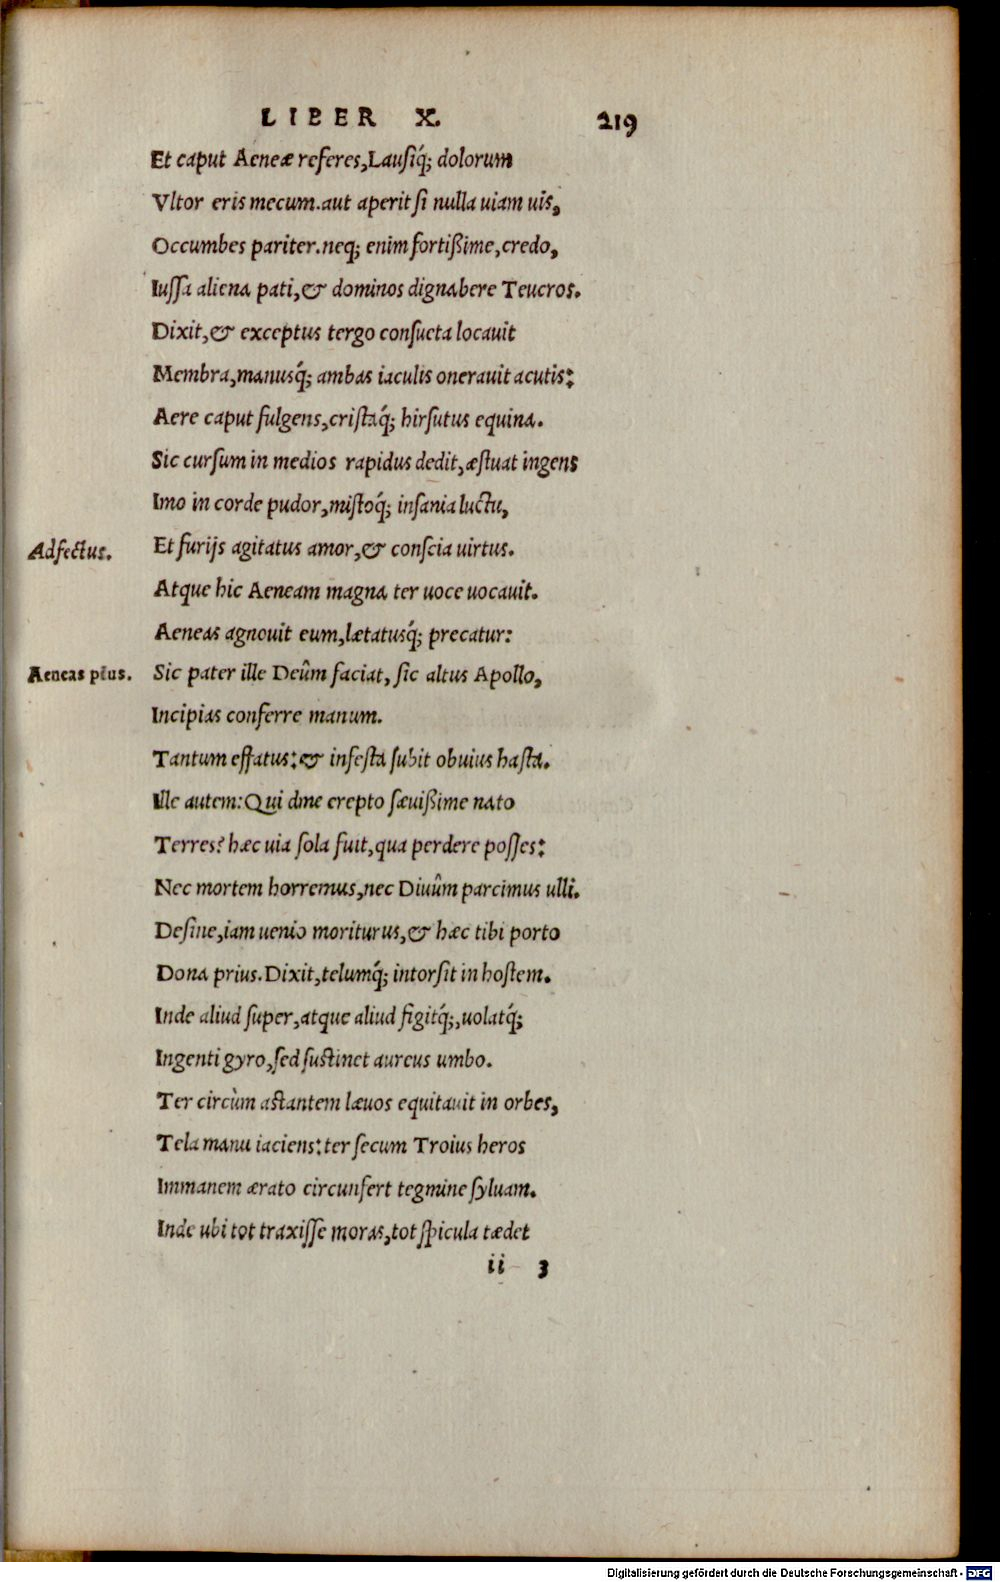 LIBER X. 219
Et caput Aeneæ referes,Lausiq́; dolorum
Vltor eris mecum.aut aperit si nulla uiam uis,
Occumbes pariter.neq; enim fortißime,credo,
Iussa aliena pati,& dominos dignabere Teucros.
Dixit,& exceptus tergo consueta locauit
Membra,manusq́; ambas iaculis onerauit acutis:
Aere caput fulgens,cristaq́; hirsutus equina.
Sic cursum in medios rapidus dedit,æstuat ingens
Imo in corde pudor,mistoq́; insania luctu,
Adfectus. Et furijs agitatus amor,& conscia uirtus.
Atque hic Aeneam magna ter uoce uocauit.
Aeneas agnouit eum,lætatusq́; precatur:
Aeneas pius. Sic pater ille Deûm faciat, sic altus Apollo,
Incipias conferre manum.
Tantum effatus:& infesta subit obuius hasta.
Ille autem:Qui dme erepto sæuißime nato
Terres? hæc uia sola fuit,qua perdere posses:
Nec mortem horremus,nec Diuûm parcimus ulli.
Desine,iam uenio moriturus,& hæc tibi porto
Dona prius.Dixit,telumq́; intorsit in hostem.
Inde aliud super,atque aliud figitq́;,uolatq́;
Ingenti gyro,sed sustinet aureus umbo.
Ter circùm astantem læuos equitauit in orbes,
Tela manu iaciens:ter secum Troius heros
Immanem ærato circunfert tegmine syluam.
Inde ubi tot traxisse moras,tot spicula tædet
ii 3
Digitalisierung gefördert durch die Deutsche Forschungsgemeinschaft - DFG